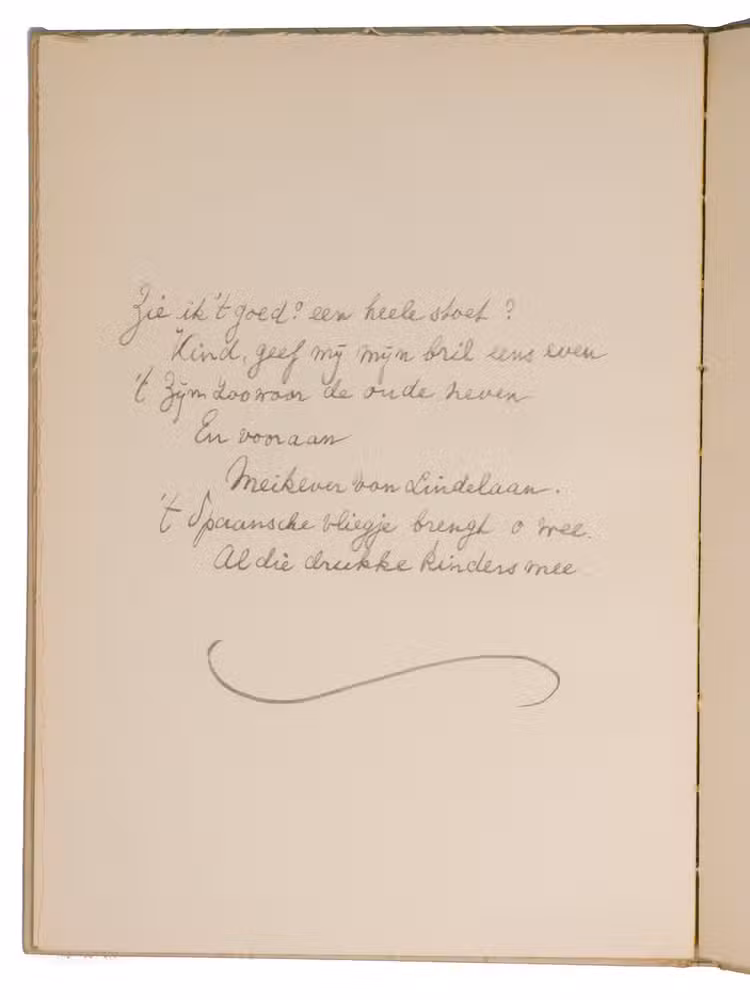 Zie ik 't goed? een heele stoet?
Kind, geef mij mijn bril eens even
't Zijn zoowaar de oude neven
En vooraan
Meikever van Lindelaan.
't Spaansche vliegje brengt o wee.
Al die drukke kinders mee